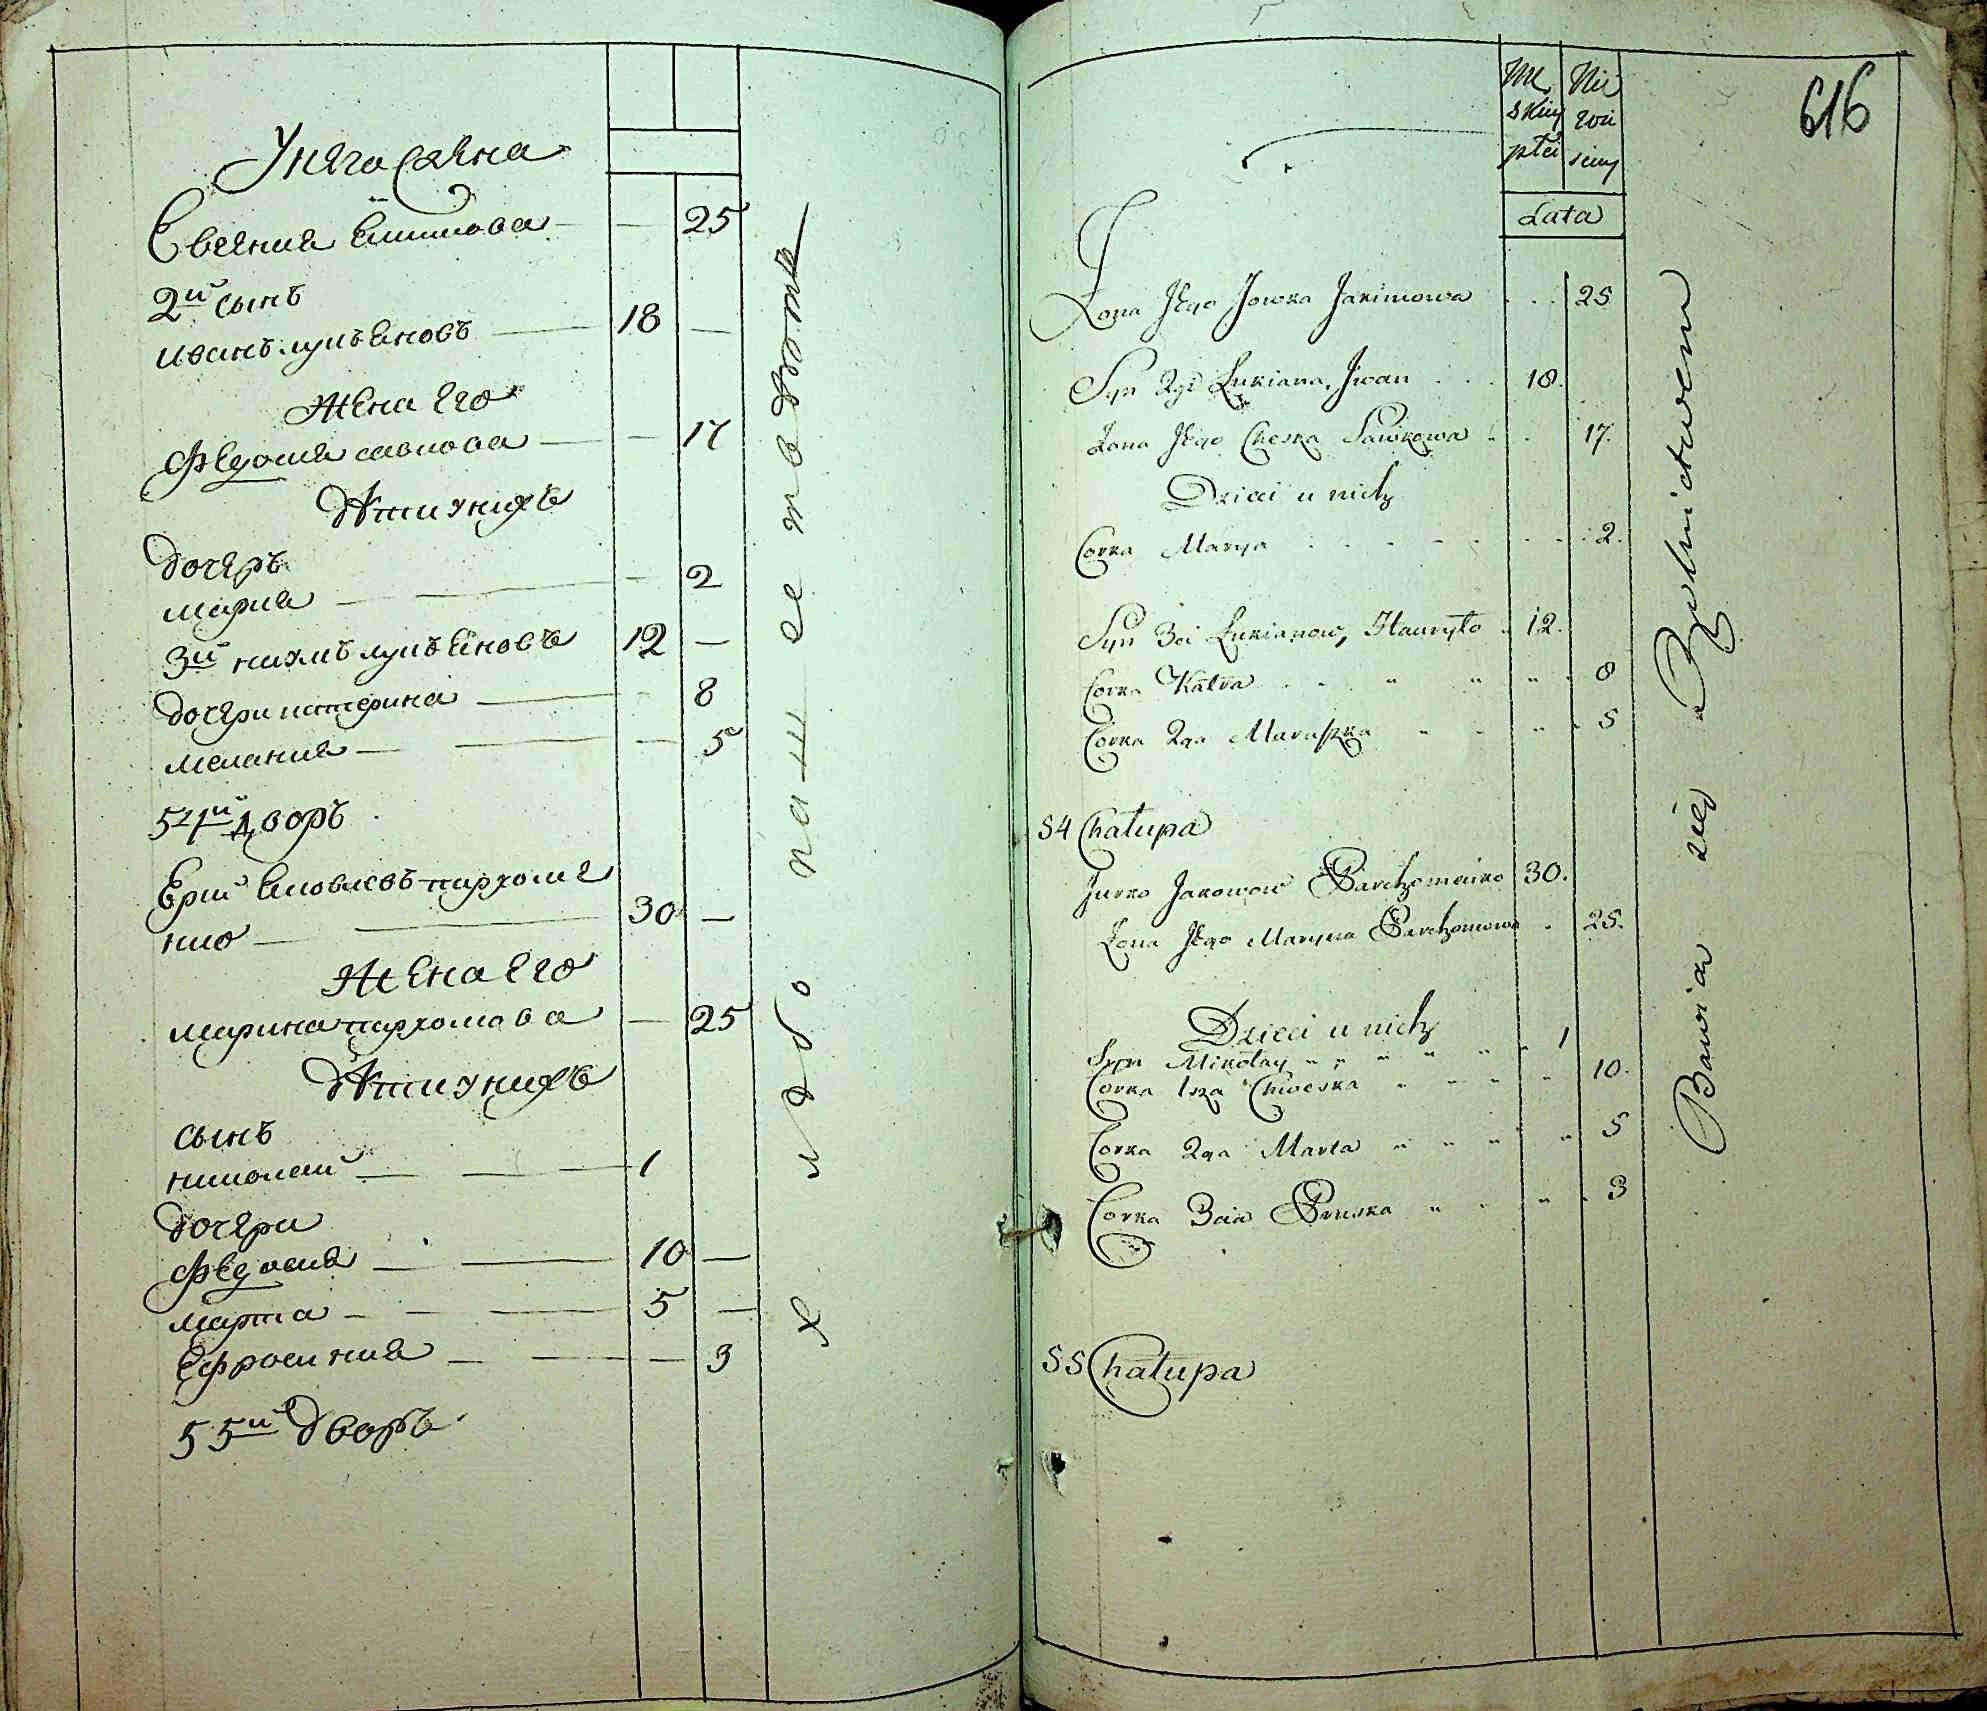 У него жена
Евгения Екимова 25
2й сынъ
иванъ лукьяновъ 18
Жена Его
Федосия савкова 17
Дѣти у нихъ
дочерь
мария 2
3й наумъ лукьяновъ 12
дочери катерина 8
мелания 5
54й Дворъ
Ерий Яковлевъ пархоме
нко 30
Жена Его
марина пархомова 25
Дѣти у нихъ
сынъ
николай 1
дочери
Федосия 10
марта 5
Ефросиния 3
55й дворъ
хлебопашеством
616
Me Nie
skiey wie
płci sciey
Lata
Żona Jego Jowka Jakimowa 25
Syn 2gi Łukiana, Jwan 18.
Żona Jego Cheska Sawkowa 17.
Dzieci u nich
Corka Marya 2.
Syn 3ci Łukianow, Hauryło 12.
Corka Katra 8
Corka 2ga Maruszka 5
54 Chałupa
Jurko Jakowow Parchomenko 30.
Żona Jego Maryna Parchomowa 25.
Dzieci u nich
Syn Mikołay 1
Corka 1sza Chweska 10.
Corka 2ga Marta 5
Corka 3cia Pruska 3
55 Chałupa
Bawia się Rzolnictwem